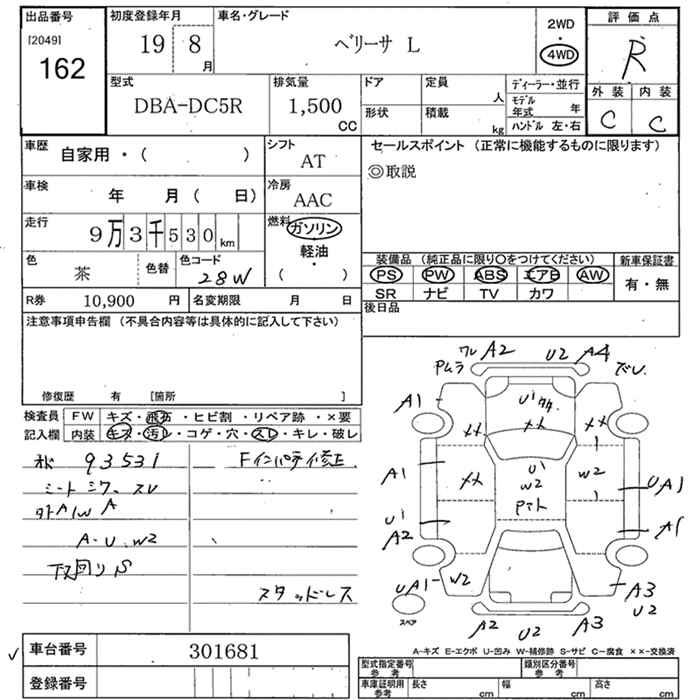 出品番号
[2049]
162
初度登録年月
19 8
月
車名・グレード
ベリーサ L
2WD
・
4WD
評価点
R
外装 内装
C C
型式
DBA-DC5R
排気量
1,500
CC
ドア
形状
定員
人
積載
kg
ディーラー・並行
モデル年式 年
ハンドル 左・右
車歴
自家用・( )
シフト
AT
車検
年 月( 日)
冷房
AAC
走行
9万3千530km
燃料
ガソリン
軽油
・
( )
色
茶
色替
色コード
28W
R券 10,900 円
名変期限 月 日
セールスポイント (正常に機能するものに限ります)
◎取説
装備品 (純正品に限り○をつけてください)
PS PW ABS エアB AW
SR ナビ TV カワ
新車保証書
有・無
後日品
注意事項申告欄 (不具合内容等は具体的に記入して下さい)
修復歴 有 [箇所 ]
検査員
記入欄
FW キズ・飛石・ヒビ割・リペア跡・×要
内装 キズ・汚レ・コゲ・穴・スレ・キレ・破レ
93531
シート シワ スレ
A/W A
A・U・W2
下回り S
Fインパチィ修正
スタッドレス
ワレ A2 U2 A4
Pムラ
A1
××
××
××
A1
U
W2
W2
UA1
A2
A1
UA1
W2
スペア
A2 U2 A3
A3
U2
A-キズ E-エクボ U-凹み W-補修跡 S-サビ C-腐食 ××-交換済
✓
車台番号 301681
登録番号
型式指定番号
参考
類別区分番号
参考
車庫証明用
参考
長さ cm
幅 cm
高さ cm